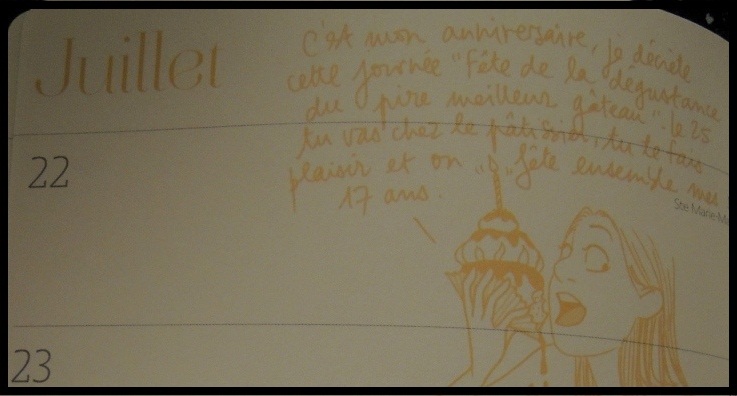 Juillet
C'est mon anniversaire, je décrète
cette journée "Fête de la degustance
du pire meilleur gâteau". Le 25
tu vas chez le pâtissier, tu te fais
plaisir et on " " fête ensemble mes
17 ans.
22
Ste Marie-M
23